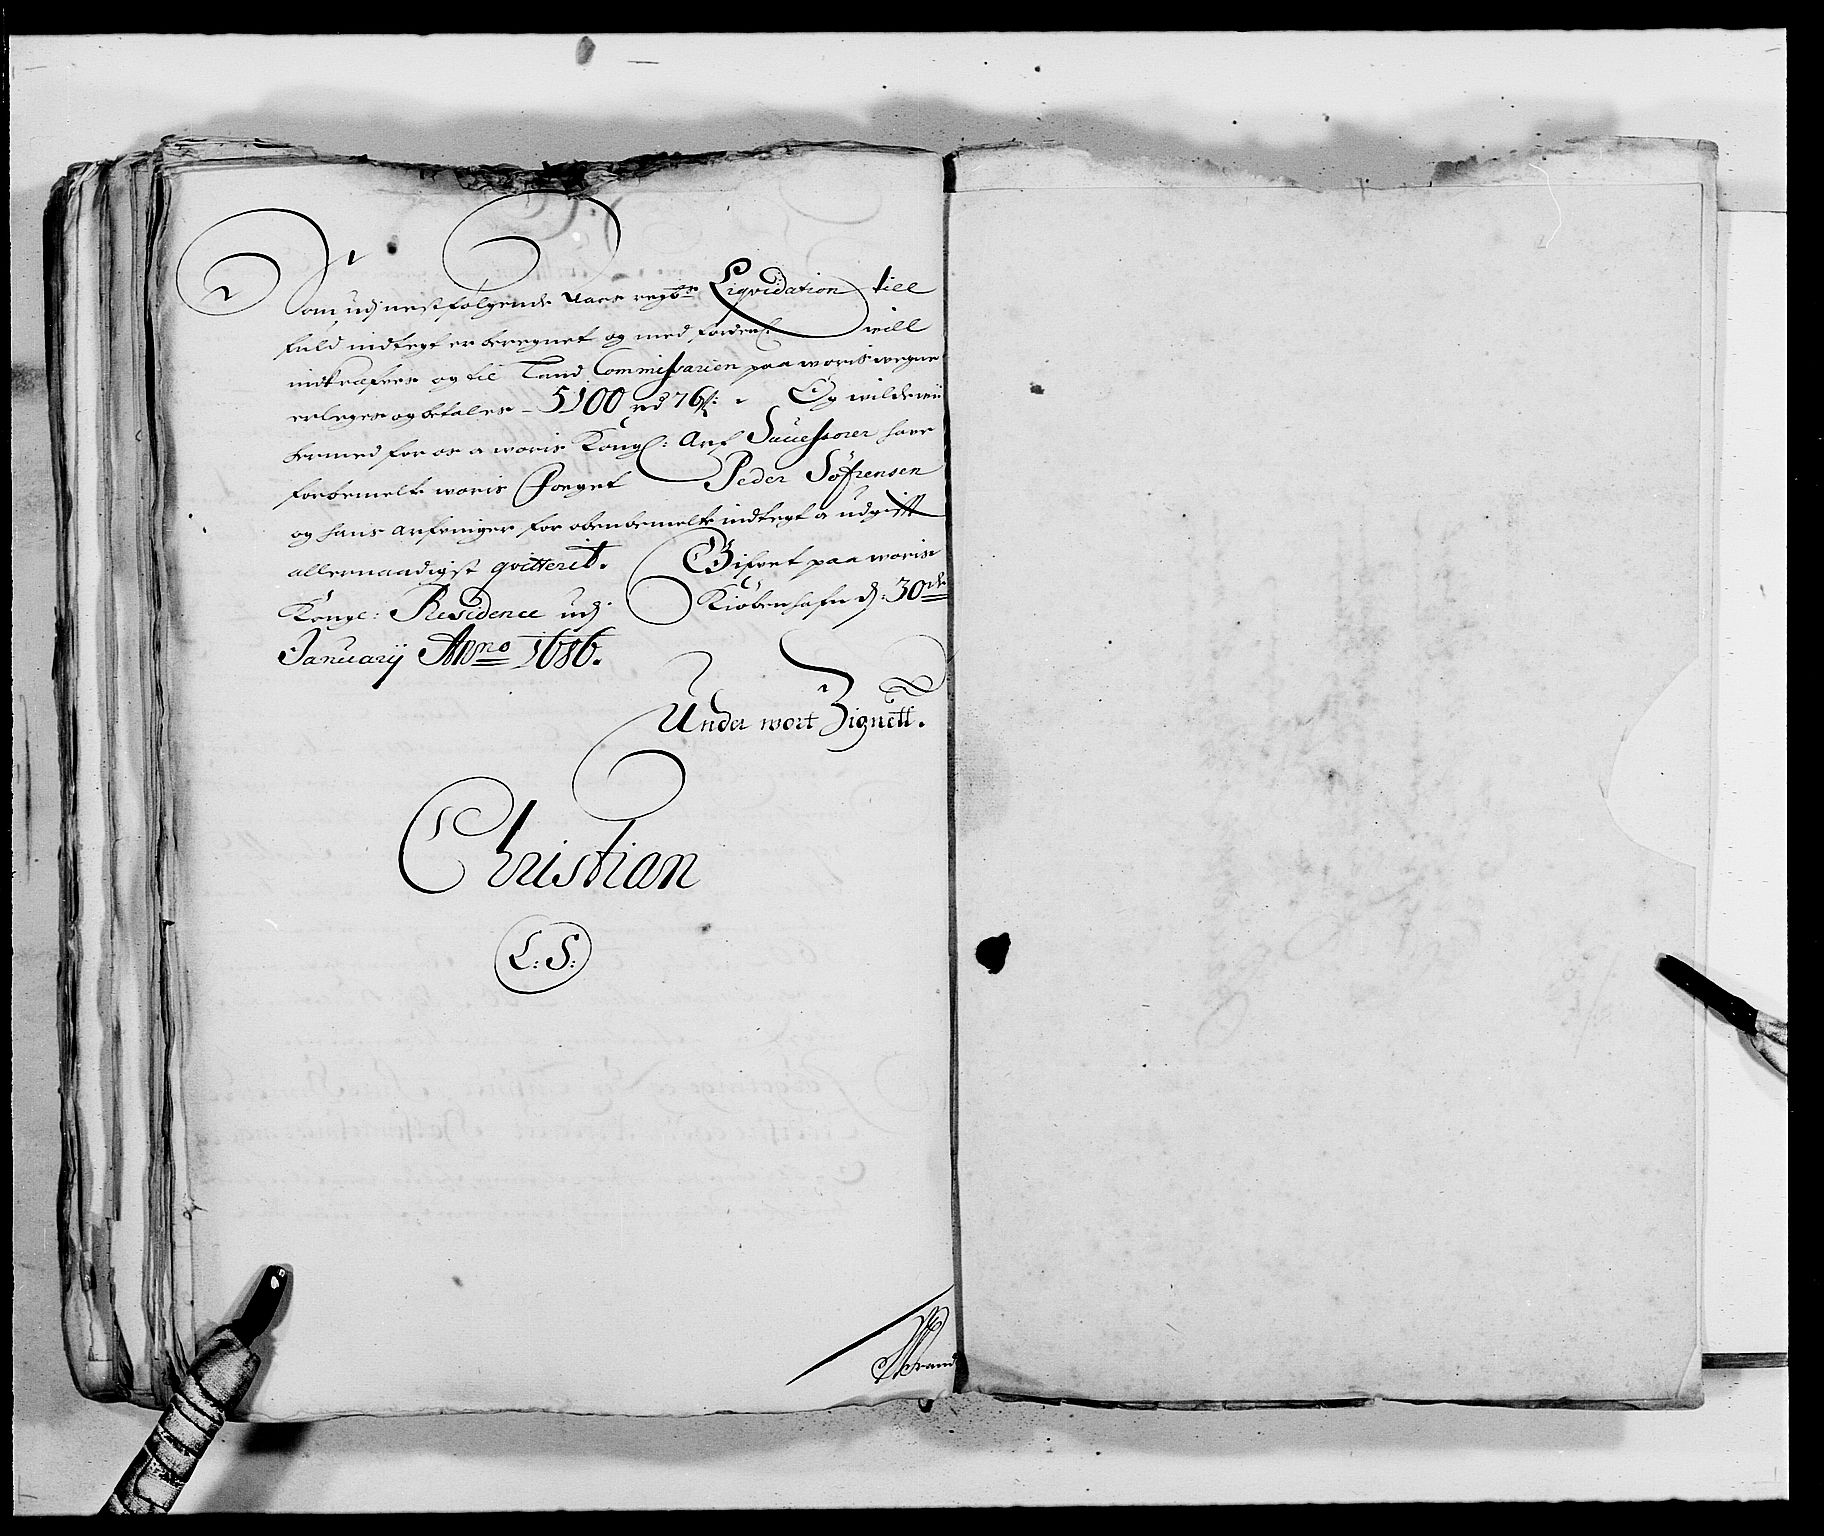 Som udj nestfølgende Aars regnb: Liqvidation till
fuld indtegt er beregnet og med forderl: will
indkræfves og til Land Commissarien paa woris wegne
erleges og betales - 5100 rd 76 s: Og wilde wii
hermed for os a woris Kongl: Arf Successorer hafve
forbemelte woris Foget Peder Søfrensen
og hans arfvinger for obenbemelte indtegt a udgifft
allernaadigst qvitterit. Gifvet paa woris
Kongl: Residence udj Kiøbenhafn d: 30de
Januarij Anno 1686.
Under wort Zignett.
Christian
L: S: